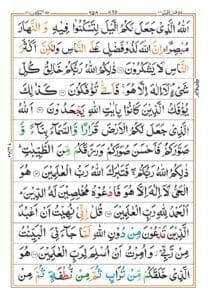 اللّٰهُ الَّذِیْ جَعَلَ لَكُمُ الَّیْلَ لِتَسْكُنُوْا فِیْهِ وَ النَّهَارَ
مُبْصِرًا ؕ اِنَّ اللّٰهَ لَذُوْ فَضْلٍ عَلَى النَّاسِ وَ لٰكِنَّ اَكْثَرَ
النَّاسِ لَا یَشْكُرُوْنَ ۝ ذٰلِكُمُ اللّٰهُ رَبُّكُمْ خَالِقُ كُلِّ
شَیْءٍ ۘ لَاۤ اِلٰهَ اِلَّا هُوَ ۚ فَاَنّٰى تُؤْفَكُوْنَ ۝ كَذٰلِكَ
یُؤْفَكُ الَّذِیْنَ كَانُوْا بِاٰیٰتِ اللّٰهِ یَجْحَدُوْنَ ۝ اَللّٰهُ
الَّذِیْ جَعَلَ لَكُمُ الْاَرْضَ قَرَارًا وَّ السَّمَآءَ بِنَآءً وَّ
صَوَّرَكُمْ فَاَحْسَنَ صُوَرَكُمْ وَ رَزَقَكُمْ مِّنَ الطَّیِّبٰتِ ؕ
ذٰلِكُمُ اللّٰهُ رَبُّكُمْ ۖۚ فَتَبٰرَكَ اللّٰهُ رَبُّ الْعٰلَمِیْنَ ۝ هُوَ
الْحَیُّ لَاۤ اِلٰهَ اِلَّا هُوَ فَادْعُوْهُ مُخْلِصِیْنَ لَهُ الدِّیْنَ ؕ
اَلْحَمْدُ لِلّٰهِ رَبِّ الْعٰلَمِیْنَ ۝ قُلْ اِنِّیْ نُهِیْتُ اَنْ اَعْبُدَ
الَّذِیْنَ تَدْعُوْنَ مِنْ دُوْنِ اللّٰهِ لَمَّا جَآءَنِیَ الْبَیِّنٰتُ
مِنْ رَّبِّیْ ؗ وَ اُمِرْتُ اَنْ اُسْلِمَ لِرَبِّ الْعٰلَمِیْنَ ۝ هُوَ
الَّذِیْ خَلَقَكُمْ مِّنْ تُرَابٍ ثُمَّ مِنْ نُّطْفَةٍ ثُمَّ مِنْ